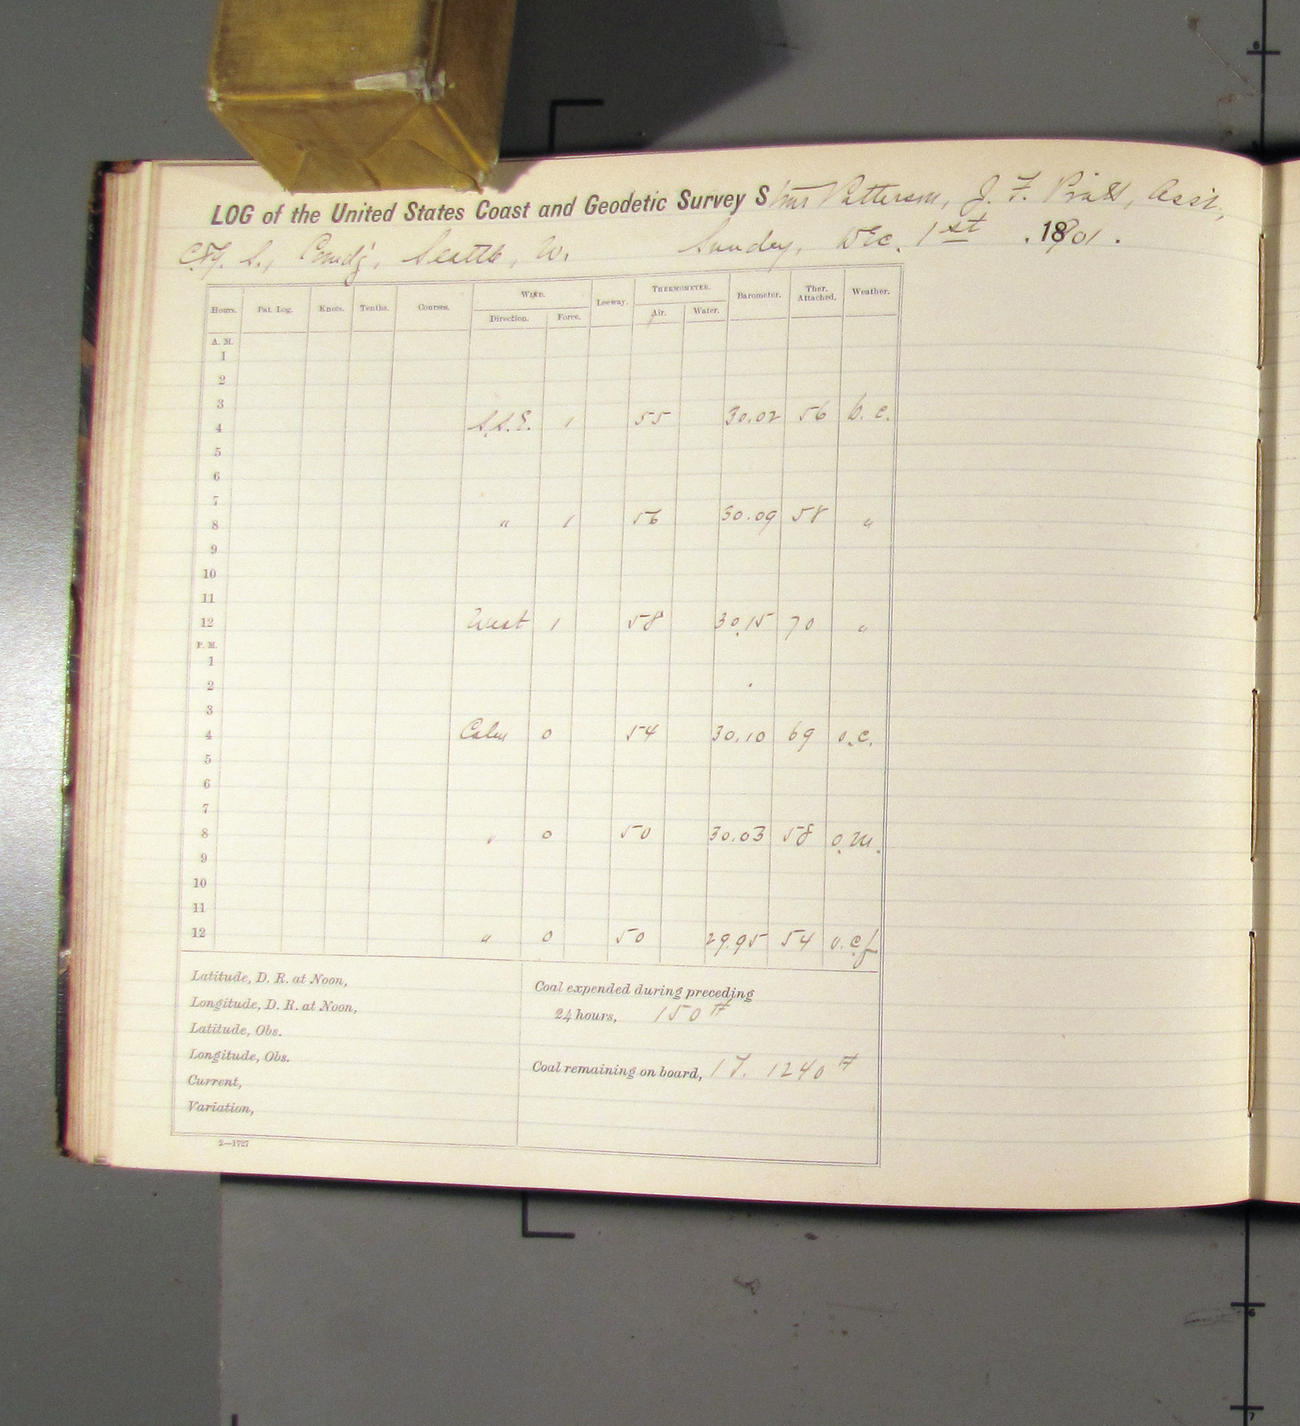 LOG of the United States Coast and Geodetic Survey Stmr Patterson, J. F. Pratt, Asst,
C. & G. S., Comd'g, Seattle, W. Sunday, Dec. 1st, 1901.
Hours. Pat. Log. Knots. Tenths. Courses. WIND. Leeway. THERMOMETER. Barometer. Ther. Attached. Weather.
Direction. Force. Air. Water.
A. M.
1
2
3
4 S.S.E. 1 55 30.02 56 b.c.
5
6
7
8 " 1 56 30.09 58 "
9
10
11
12 West 1 58 30.15 70 "
P. M.
1
2
3
4 Calm 0 54 30.10 69 o.c.
5
6
7
8 " 0 50 30.03 58 o.m.
9
10
11
12 " 0 50 29.95 54 o.c.f
Latitude, D. R. at Noon,
Longitude, D. R. at Noon,
Latitude, Obs.
Longitude, Obs.
Current,
Variation,
Coal expended during preceding
24 hours, 150 #
Coal remaining on board, 1 T. 1240 #
2—1727
6
6
7